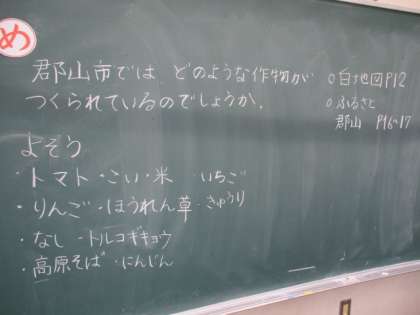 め
郡山市では どのような作物が
つくられているのでしょうか。
○白地図P12
○ふるさと
郡山 P16~17
よそう
・トマト・こい・米 いちご
・りんご・ほうれん草・きゅうり
・なし -トルコギキョウ
・高原そば・にんじん